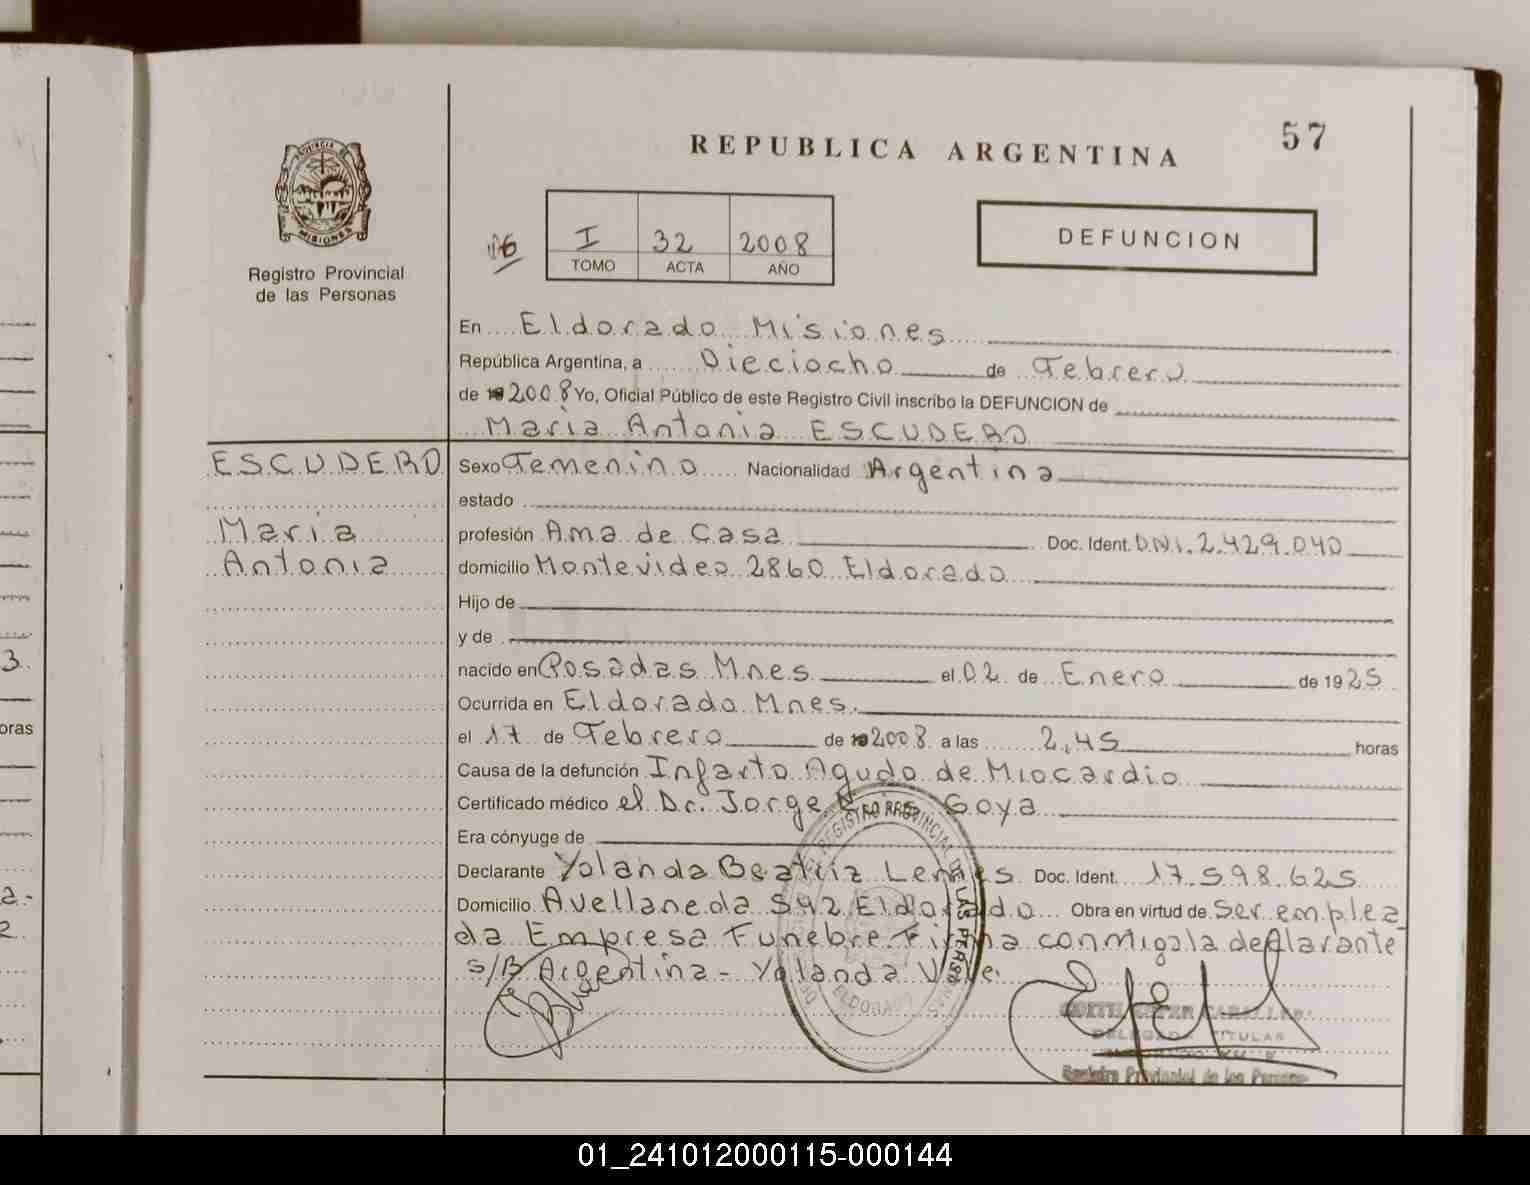 57
REPUBLICA ARGENTINA
PROVINCIA DE
MISIONES
Registro Provincial
de las Personas
I 32 2008
TOMO ACTA AÑO
DEFUNCION
En Eldorado Misiones
República Argentina, a Dieciocho de Febrero
de 2008 Yo, Oficial Público de este Registro Civil inscribo la DEFUNCION de
Maria Antonia ESCUDERO
ESCUDERO
Maria
Antonia
Sexo Femenino Nacionalidad Argentina
estado
profesión Ama de Casa Doc. Ident. D.N.I. 2.429.040
domicilio Montevideo 2860 Eldorado
Hijo de
y de
nacido en Posadas Mnes. el 02 de Enero de 1925
Ocurrida en Eldorado Mnes.
el 17 de Febrero de 2008 a las 2,45 horas
Causa de la defunción Infarto Agudo de Miocardio
Certificado médico el Dr. Jorge Goya
Era cónyuge de
Declarante Yolanda Beatriz Doc. Ident. 17.598.625
Domicilio Avellaneda 592 Eldorado Obra en virtud de Ser emplea
da Empresa Funebre Firma conmigo la declarante
s/B Argentina - Yolanda Vale.
REGISTRO PROVINCIAL DE LAS PERSONAS
ELDORADO
CABALLERO
DELEGADA TITULAR
Registro Provincial de las Personas
3.
oras
a-
2.
01_241012000115-000144